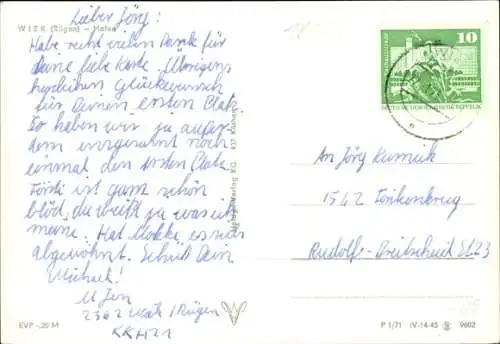 WIEK (Rügen) – Hafen
Lieber Jörg!
Habe recht vielen Dank für
Deine liebe Karte. Übrigens
herzlichen Glückwunsch
für Deinen ersten Platz.
So haben wir ja außer-
dem insgesamt noch
einmal den ersten Platz.
ist ganz schön
blöd, du weißt ja was ich
meine. Hat es sich
abgewöhnt. Schreib Dein
Michael!
2362 Wiek / Rügen
10
DEUTSCHE DEMOKRATISCHE REPUBLIK
An Jörg
1542
Rudolf-Breitscheid St. 23
EVP -,20 M
P 1/71 IV-14-45 9602